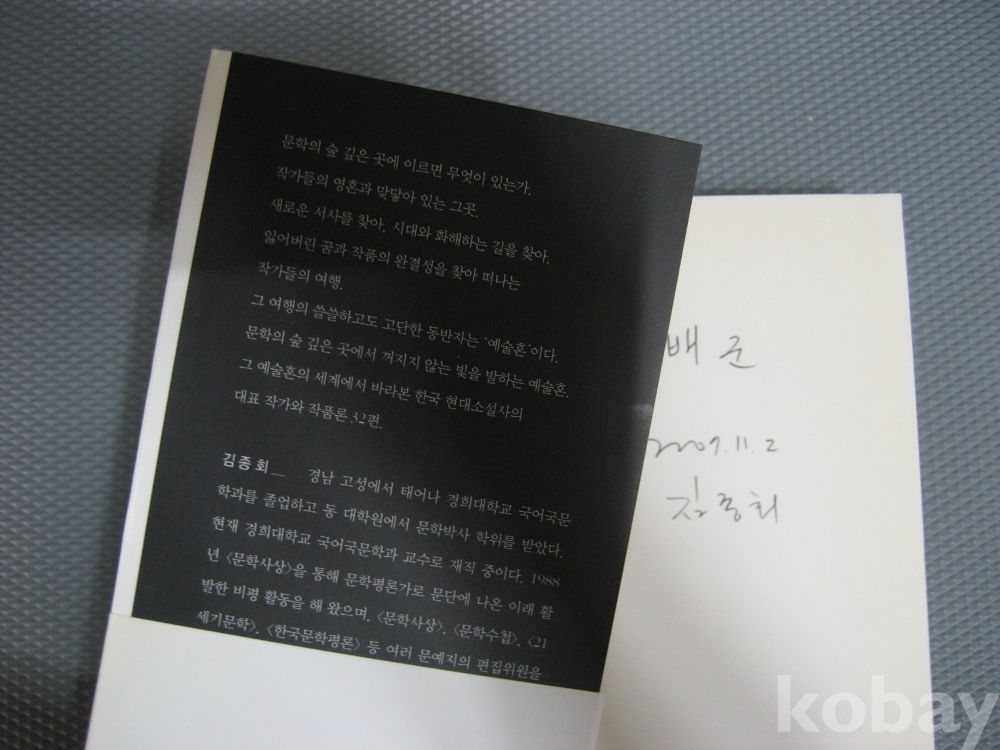 문학의 숲 깊은 곳에 이르면 무엇이 있는가.
작가들의 영혼과 맞닿아 있는 그곳.
새로운 서사를 찾아, 시대와 화해하는 길을 찾아,
잃어버린 꿈과 작품의 완결성을 찾아 떠나는
작가들의 여행.
그 여행의 쓸쓸하고도 고단한 동반자는 '예술혼'이다.
문학의 숲 깊은 곳에서 꺼지지 않는 빛을 발하는 예술혼.
그 예술혼의 세계에서 바라본 한국 현대소설사의
대표 작가와 작품론 32편.
김종회_ 경남 고성에서 태어나 경희대학교 국어국문
학과를 졸업하고 동 대학원에서 문학박사 학위를 받았다.
현재 경희대학교 국어국문학과 교수로 재직 중이다. 1988
년 〈문학사상〉을 통해 문학평론가로 문단에 나온 이래 활
발한 비평 활동을 해 왔으며, 〈문학사상〉, 〈문학수첩〉, 〈21
세기문학〉, 〈한국문학평론〉 등 여러 문예지의 편집위원을
2007.11.2
김종회
kobay